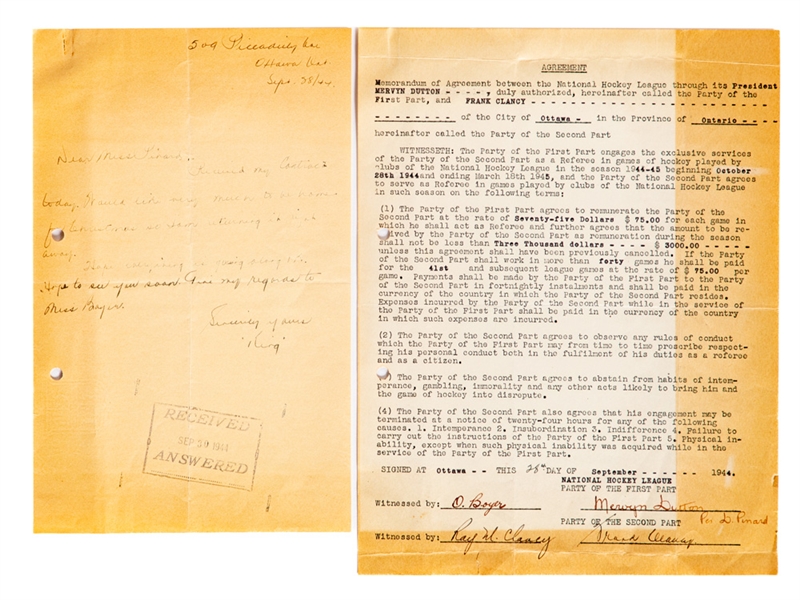 509 Piccadilly Ave
Ottawa Ont.
Sept. 28/44
Dear Miss
my
today. Would
for
away.
Hope to see you soon Give my regards to
Miss Boyer.
Sincerely yours
"King"
RECEIVED
SEP 30 1944
ANSWERED
AGREEMENT
Memorandum of Agreement between the National Hockey League through its President
MERVYN DUTTON - - - - , duly authorized, hereinafter called the Party of the
First Part, and FRANK CLANCY - - - - - - - - - - - - - - - - - - - - - - - -
- - - - - - - - - of the City of Ottawa - - in the Province of Ontario - - - -
hereinafter called the Party of the Second Part
WITNESSETH: The Party of the First Part engages the exclusive services
of the Party of the Second Part as a Referee in games of hockey played by
clubs of the National Hockey League in the season 1944-45 beginning October
28th 1944 and ending March 18th 1945, and the Party of the Second Part agrees
to serve as Referee in games played by clubs of the National Hockey League
in such season on the following terms:
(1) The Party of the First Part agrees to remunerate the Party of the
Second Part at the rate of Seventy-five Dollars $ 75.00 for each game in
which he shall act as Referee and further agrees that the amount to be re-
ceived by the Party of the Second Part as remuneration during the season
shall not be less than Three Thousand dollars - - - - $ 3000.00 - - - - -
unless this agreement shall have been previously cancelled. If the Party
of the Second Part shall work in more than forty games he shall be paid
for the 41st and subsequent league games at the rate of $ 75.00 per
game. Payments shall be made by the Party of the First Part to the Party
of the Second Part in fortnightly instalments and shall be paid in the
currency of the country in which the Party of the Second Part resides.
Expenses incurred by the Party of the Second Part while in the service of
the Party of the First Part shall be paid in the currency of the country
in which such expenses are incurred.
(2) The Party of the Second Part agrees to observe any rules of conduct
which the Party of the First Part may from time to time proscribe respect-
ing his personal conduct both in the fulfilment of his duties as a referee
and as a citizen.
(3) The Party of the Second Part agrees to abstain from habits of intem-
perance, gambling, immorality and any other acts likely to bring him and
the game of hockey into disrepute.
(4) The Party of the Second Part also agrees that his engagement may be
terminated at a notice of twenty-four hours for any of the following
causes. 1. Intemperance 2. Insubordination 3. Indifference 4. Failure to
carry out the instructions of the Party of the First Part 5. Physical in-
ability, except when such physical inability was acquired while in the
service of the Party of the First Part.
SIGNED AT Ottawa - - THIS 28th DAY OF September - - - - - - - 1944.
NATIONAL HOCKEY LEAGUE
PARTY OF THE FIRST PART
Witnessed by: O. Boyer Mervyn Dutton
PARTY OF THE SECOND PART Per D. Pinard
Witnessed by: Ray M. Clancy Frank Clancy